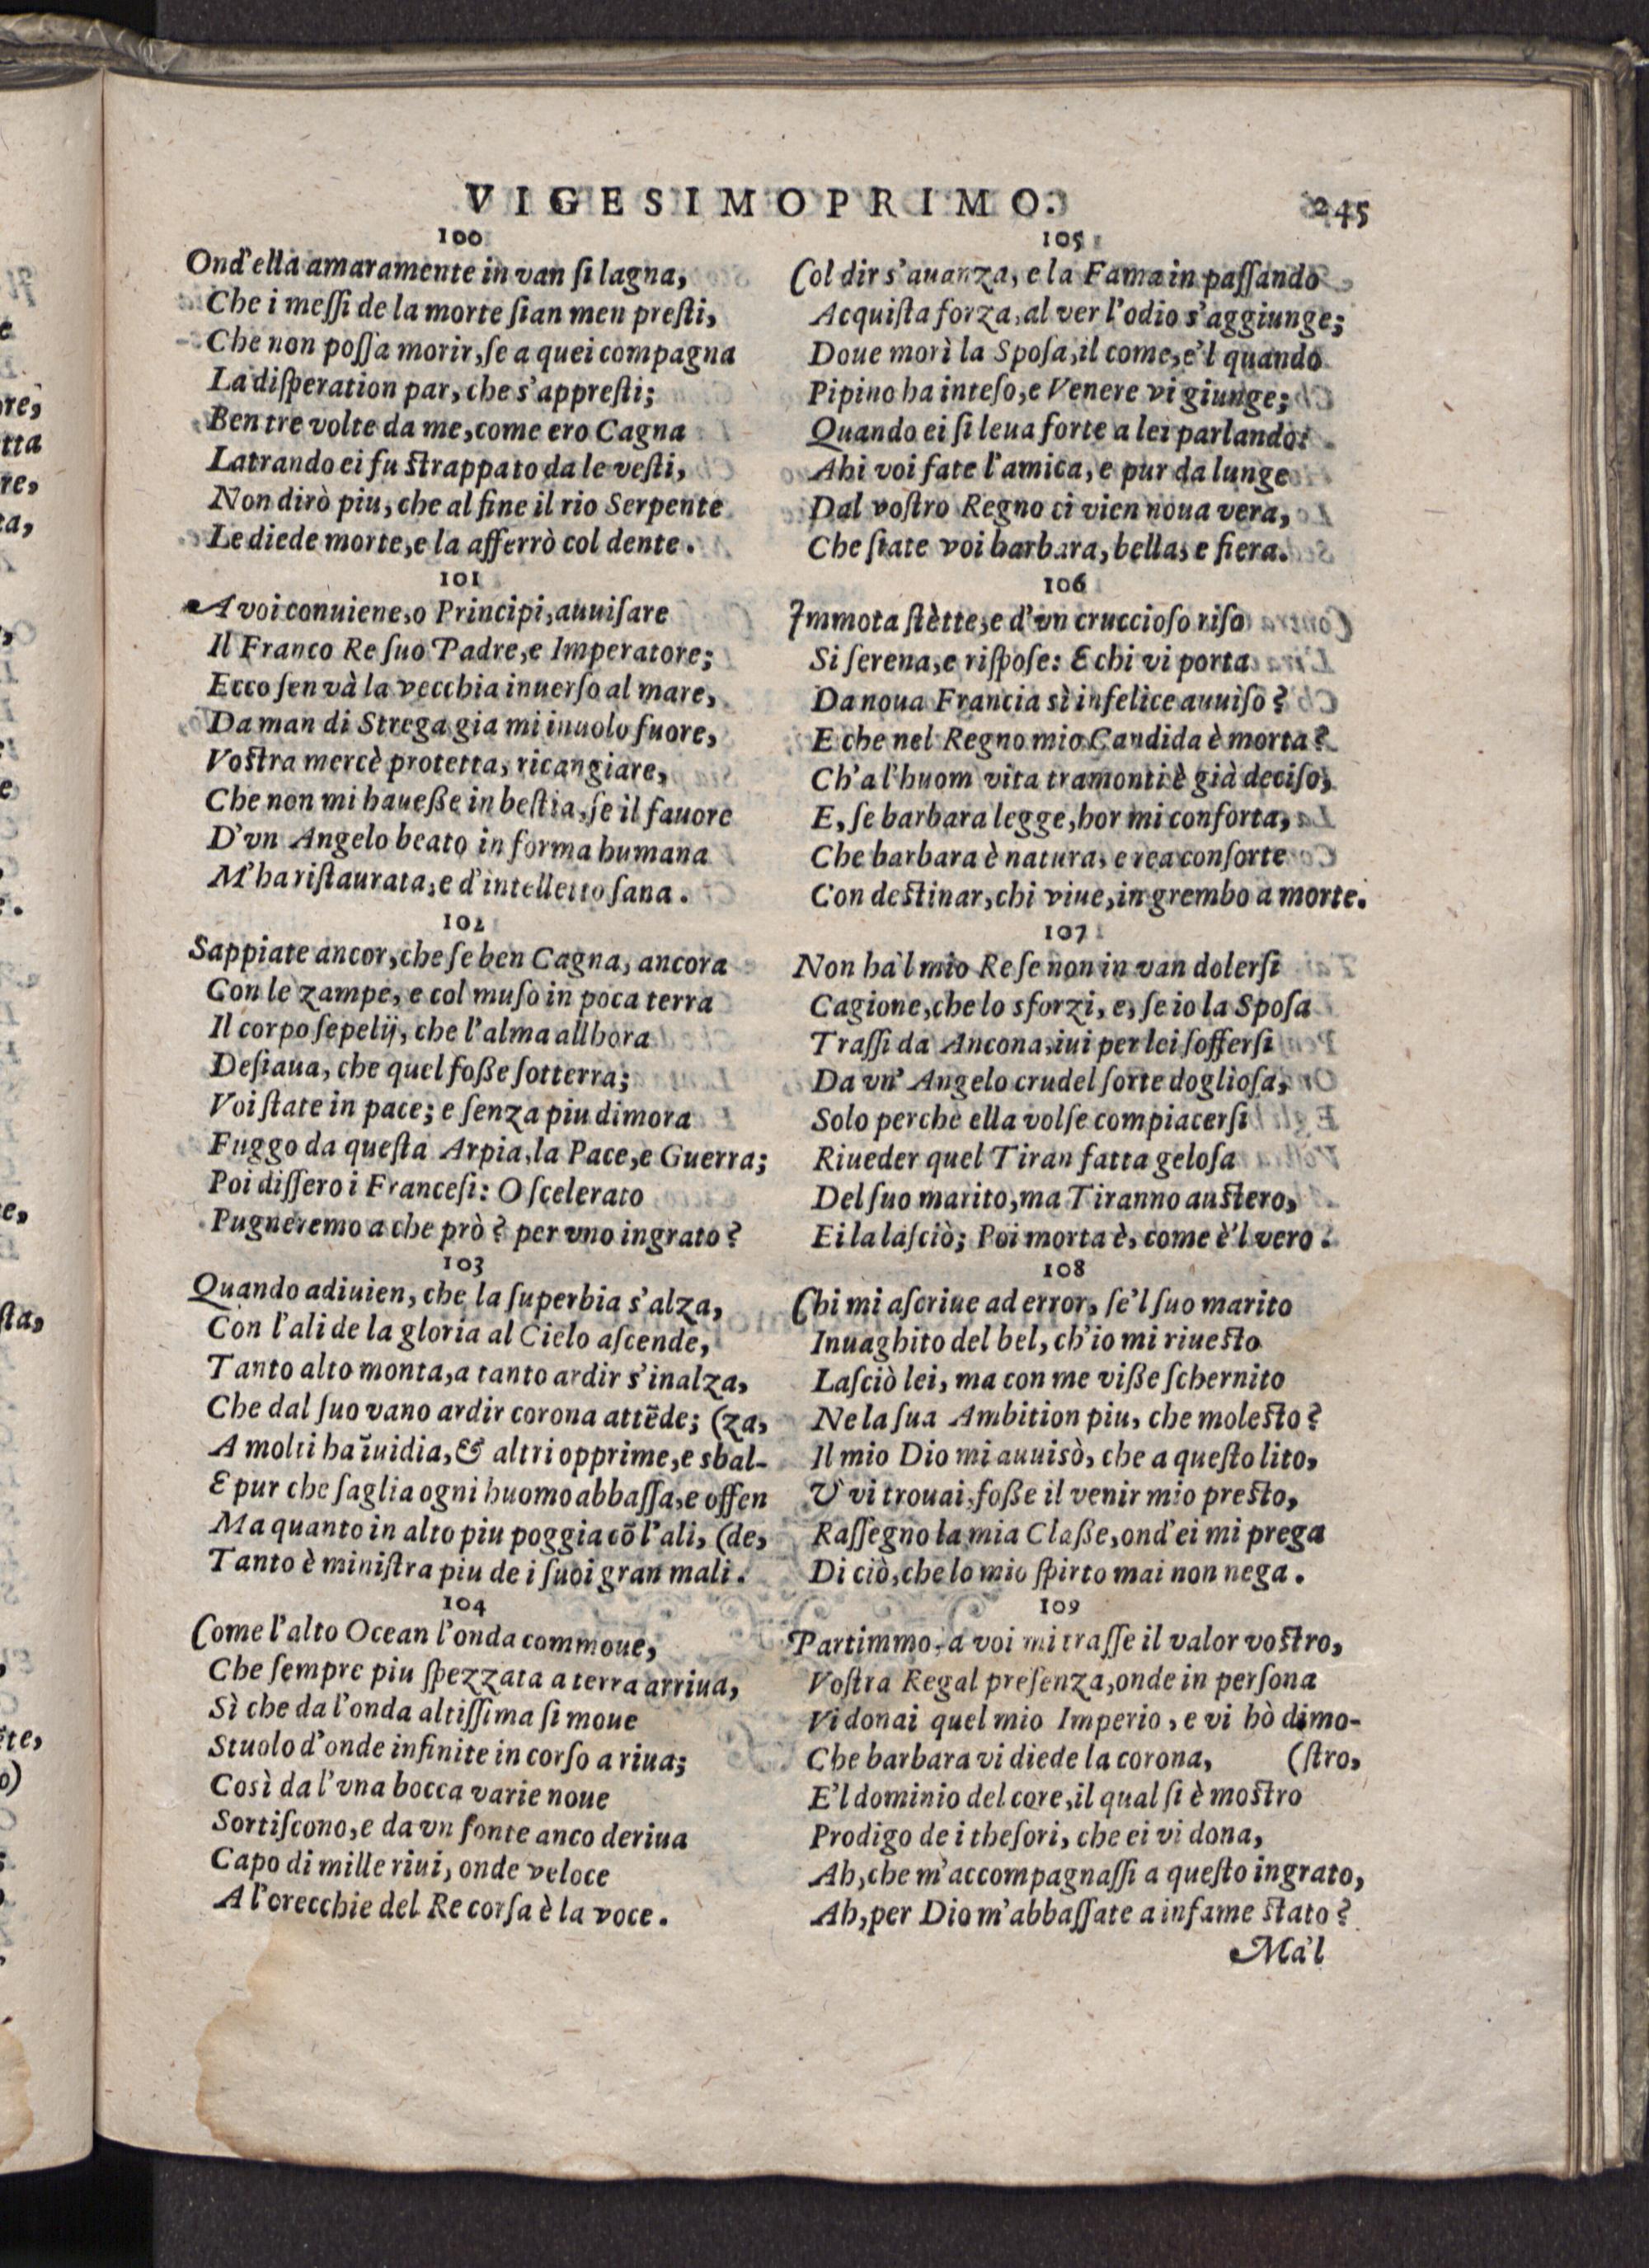 VIGESIMOPRIMO. 245
100
Ond'ella amaramente in van ſi lagna,
Che i meſſi de la morte ſian men preſti,
Che non poſſa morir, ſe a quei compagna
La diſperation par, che s'appreſti;
Ben tre volte da me, come ero Cagna
Latrando ei fu ſtrappato da le veſti,
Non dirò piu, che al fine il rio Serpente
Le diede morte, e la afferrò col dente.
101
A voi conuiene, o Principi, auuiſare
Il Franco Re ſuo Padre, e Imperatore;
Ecco ſen và la vecchia inuerſo al mare,
Da man di Strega gia mi inuolo fuore,
Voſtra mercè protetta, ricangiare,
Che non mi haueße in beſtia, ſe il fauore
D'vn Angelo beato in forma humana
M'ha riſtaurata, e d'intelletto ſana.
102
Sappiate ancor, che ſe ben Cagna, ancora
Con le zampe, e col muſo in poca terra
Il corpo ſepelij, che l'alma allhora
Deſiaua, che quel foße ſotterra;
Voi ſtate in pace; e ſenza piu dimora
Fuggo da queſta Arpia, la Pace, e Guerra;
Poi diſſero i Franceſi: O ſcelerato
Pugneremo a che prò? per vno ingrato?
103
Quando adiuien, che la ſuperbia s'alza,
Con l'ali de la gloria al Cielo aſcende,
Tanto alto monta, a tanto ardir s'inalza,
Che dal ſuo vano ardir corona attēde; (za,
A molti ha īuidia, & altri opprime, e sbal-
E pur che ſaglia ogni huomo abbaſſa, e offen
Ma quanto in alto piu poggia cō l'ali, (de,
Tanto è miniſtra piu de i ſuoi gran mali.
104
Come l'alto Ocean l'onda commoue,
Che ſempre piu ſpezzata a terra arriua,
Sì che da l'onda altiſſima ſi moue
Stuolo d'onde infinite in corſo a riua;
Così da l'vna bocca varie noue
Sortiſcono, e da vn fonte anco deriua
Capo di mille riui, onde veloce
A l'orecchie del Re corſa è la voce.
105
Col dir s'auanza, e la Fama in paſſando
Acquiſta forza, al ver l'odio s'aggiunge;
Doue morì la Spoſa, il come, e'l quando
Pipino ha inteſo, e Venere vi giunge;
Quando ei ſi leua forte a lei parlando:
Ahi voi fate l'amica, e pur da lunge
Dal voſtro Regno ci vien noua vera,
Che ſiate voi barbara, bella, e fiera.
106
Immota ſtètte, e d'vn cruccioſo riſo
Si ſerena, e riſpoſe: E chi vi porta
Da noua Francia sì infelice auuiſo?
E che nel Regno mio Candida è morta?
Ch'a l'huom vita tramonti è già deciſo,
E, ſe barbara legge, hor mi conforta,
Che barbara è natura, e rea conſorte
Con deſtinar, chi viue, in grembo a morte.
107
Non ha'l mio Re ſe non in van dolerſi
Cagione, che lo sforzi, e, ſe io la Spoſa
Traſſi da Ancona, iui per lei ſofferſi
Da vn' Angelo crudel ſorte doglioſa,
Solo perche ella volſe compiacerſi
Riueder quel Tiran fatta geloſa
Del ſuo marito, ma Tiranno auſtero,
Ei la laſciò; Poi morta è, come è'l vero.
108
Chi mi aſcriue ad error, ſe'l ſuo marito
Inuaghito del bel, ch'io mi riueſto
Laſciò lei, ma con me viße ſchernito
Ne la ſua Ambition piu, che moleſto?
Il mio Dio mi auuisò, che a queſto lito,
V' vi trouai, foße il venir mio preſto,
Raſſegno la mia Claße, ond'ei mi prega
Di ciò, che lo mio ſpirto mai non nega.
109
Partimmo, a voi mi traſſe il valor voſtro,
Voſtra Regal preſenza, onde in perſona
Vi donai quel mio Imperio, e vi hò dimo-
Che barbara vi diede la corona, (ſtro,
E'l dominio del core, il qual ſi è moſtro
Prodigo de i theſori, che ei vi dona,
Ah, che m'accompagnaſſi a queſto ingrato,
Ah, per Dio m'abbaſſate a infame ſtato?
Ma'l